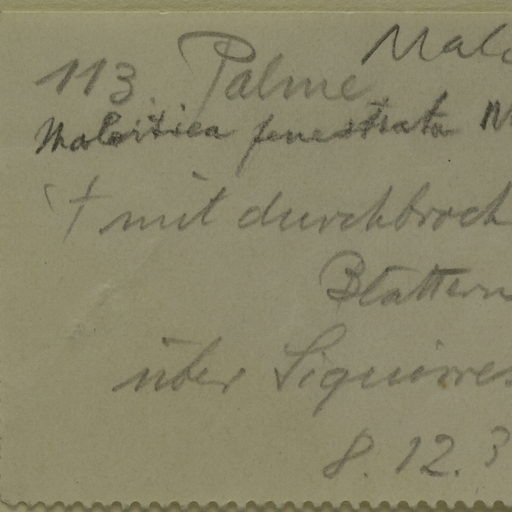 Malo
113 Palme
fenestrata
† mit durchbroch
Blättern
über Siquirres
8. 12. 3